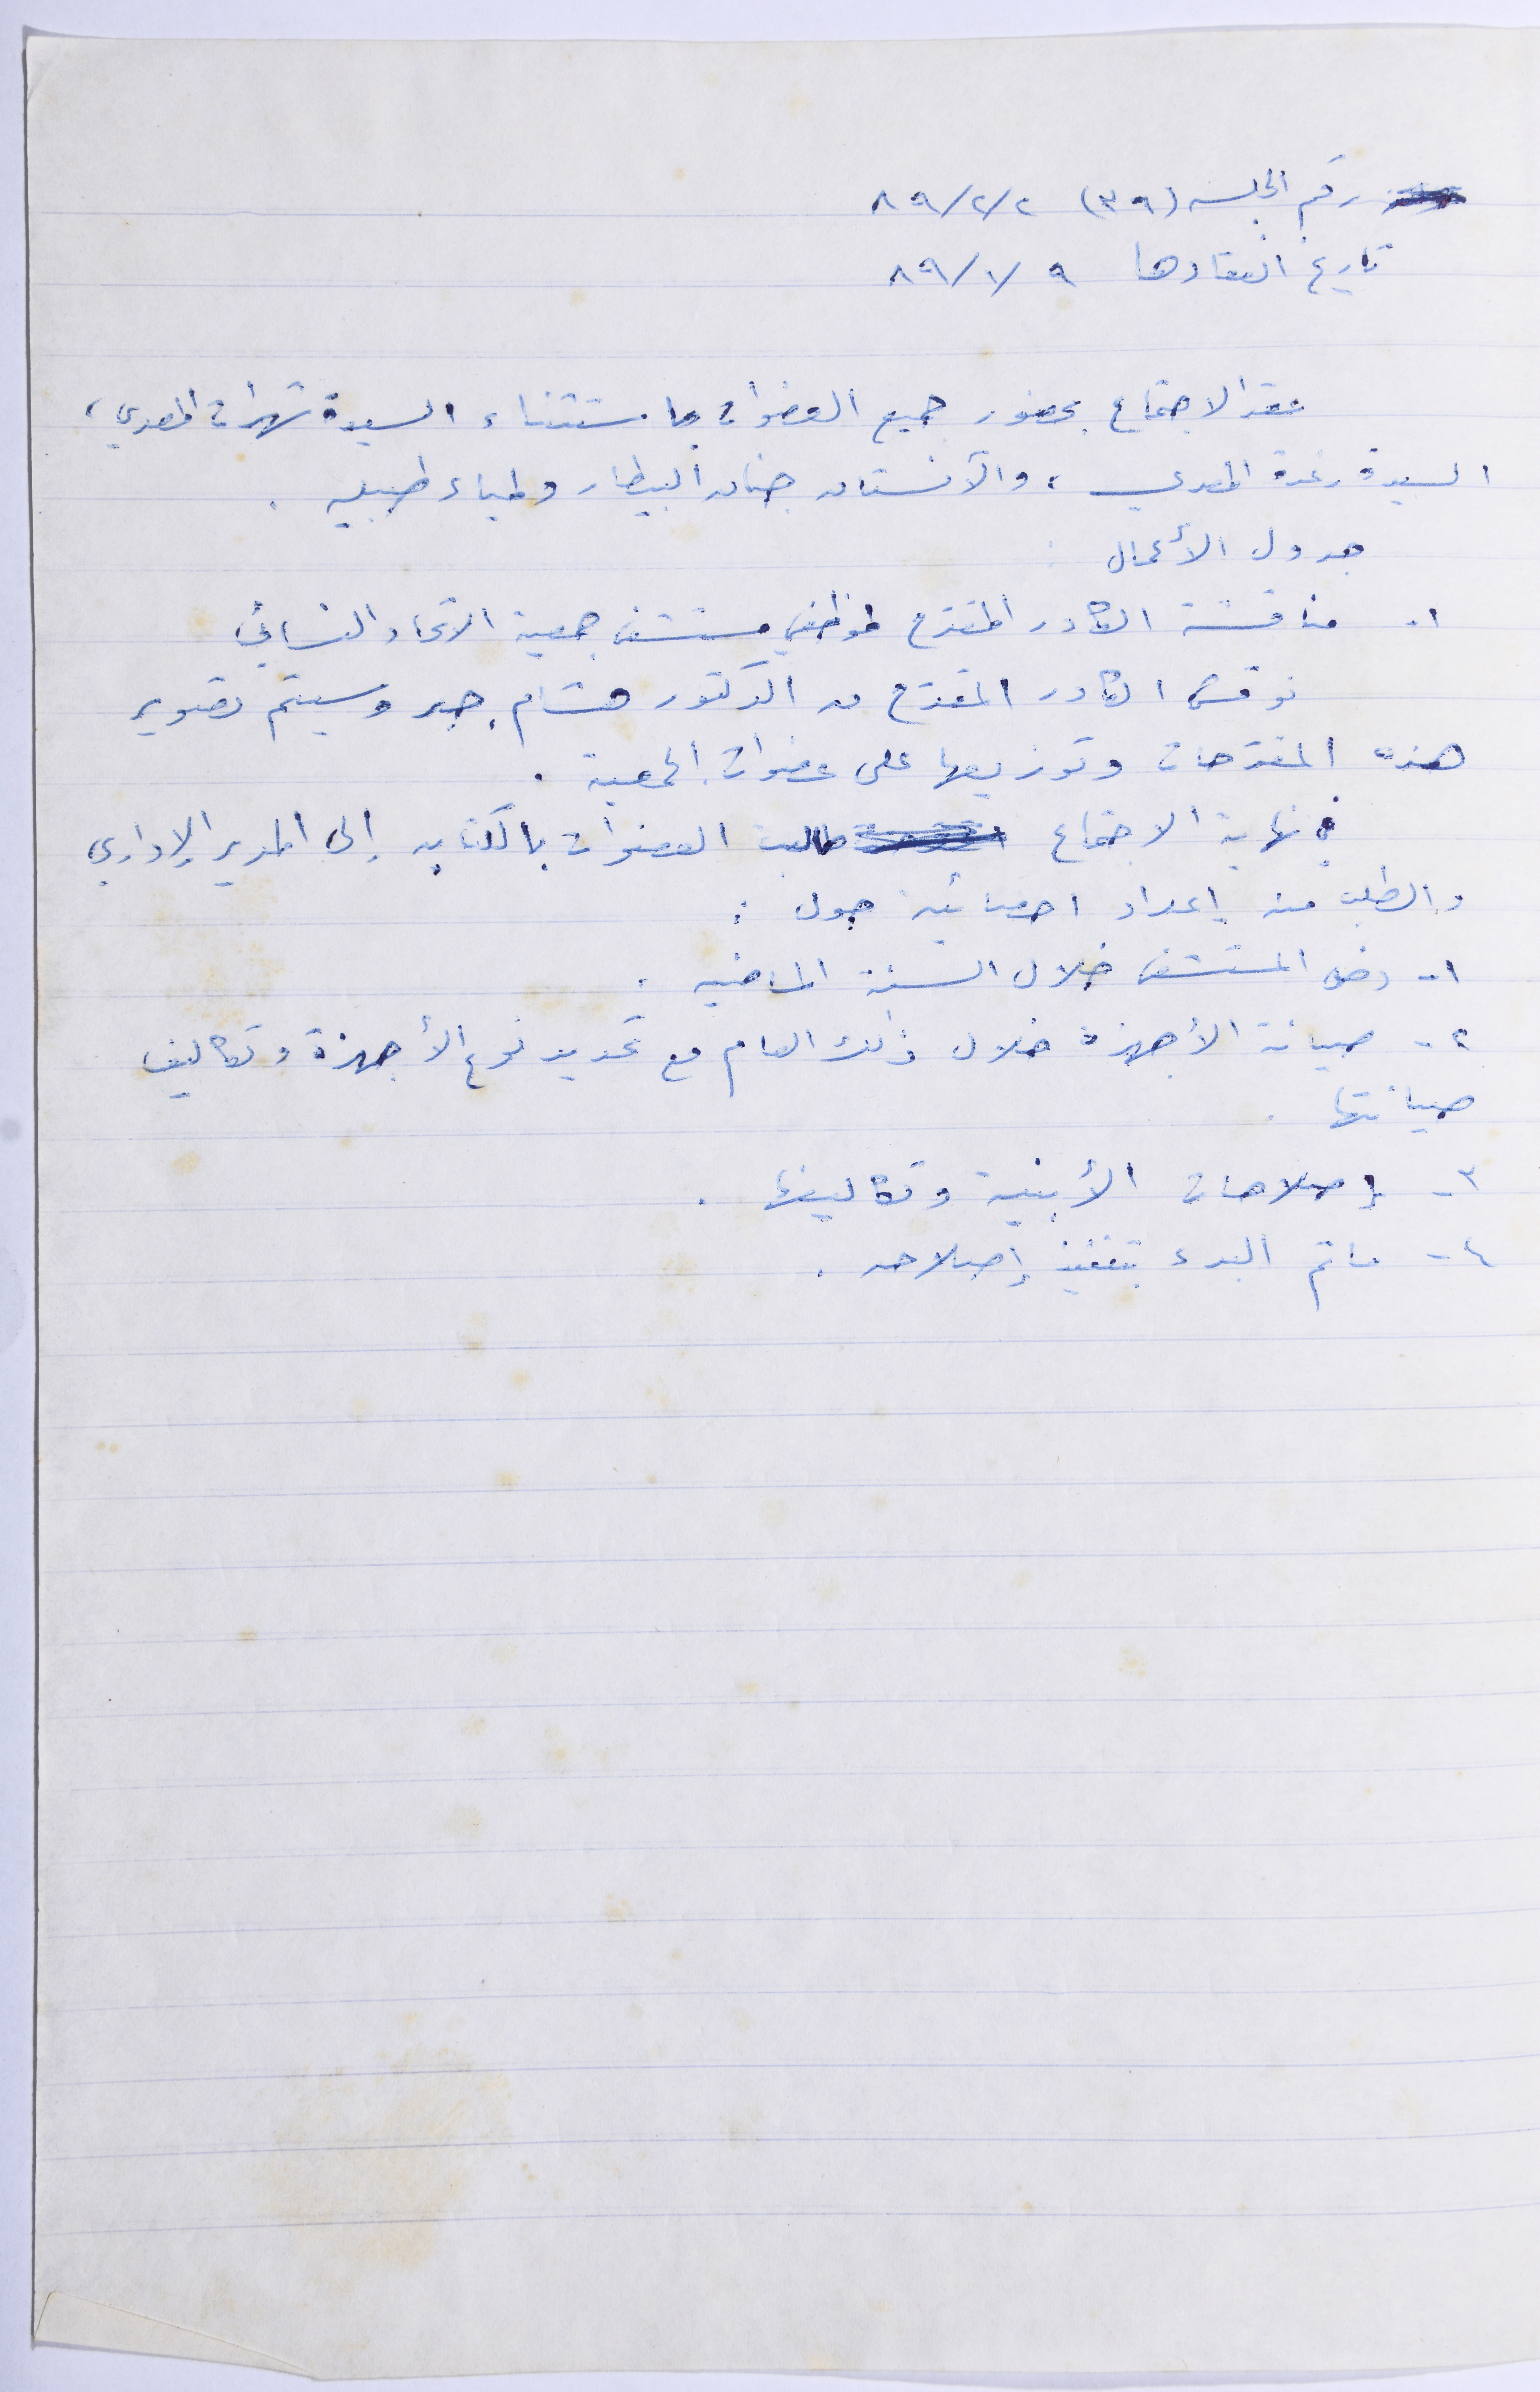 رقم الجلسه (٣٩) ٨٩/٢/٢
تاريخ انعقادها ٨٩/١/٩
عقد الاجتماع بحضور جميع العضوات باستثناء السيدة تهراث المصري،
السيدة رغدة المصري، والآنستان جنان البيطار ولمياء طبيله.
جدول الأعمال :
١- مناقشة الكادر المقترح لموظفي مستشفى جمعية الاتحاد النسائي
نوقش الكادر المقترح من الدكتور هشام جبر وسيتم تصوير
هذه المقترحات وتوزيعها على عضوات الجمعية.
في نهاية الاجتماع طالبت العضوات بالكتابه إلى المدير الإداري
والطلب منه إعداد احصائيه حول :
١- دخل المستشفى خلال السنة الماضيه.
٢- صيانة الأجهزة خلال ذلك العام مع تحديد نوع الأجهزة وتكاليف
صيانتها.
٣- إصلاحات الأبنية وتكاليفها.
٤- ماتم البدء بتنفيذ إصلاحه.